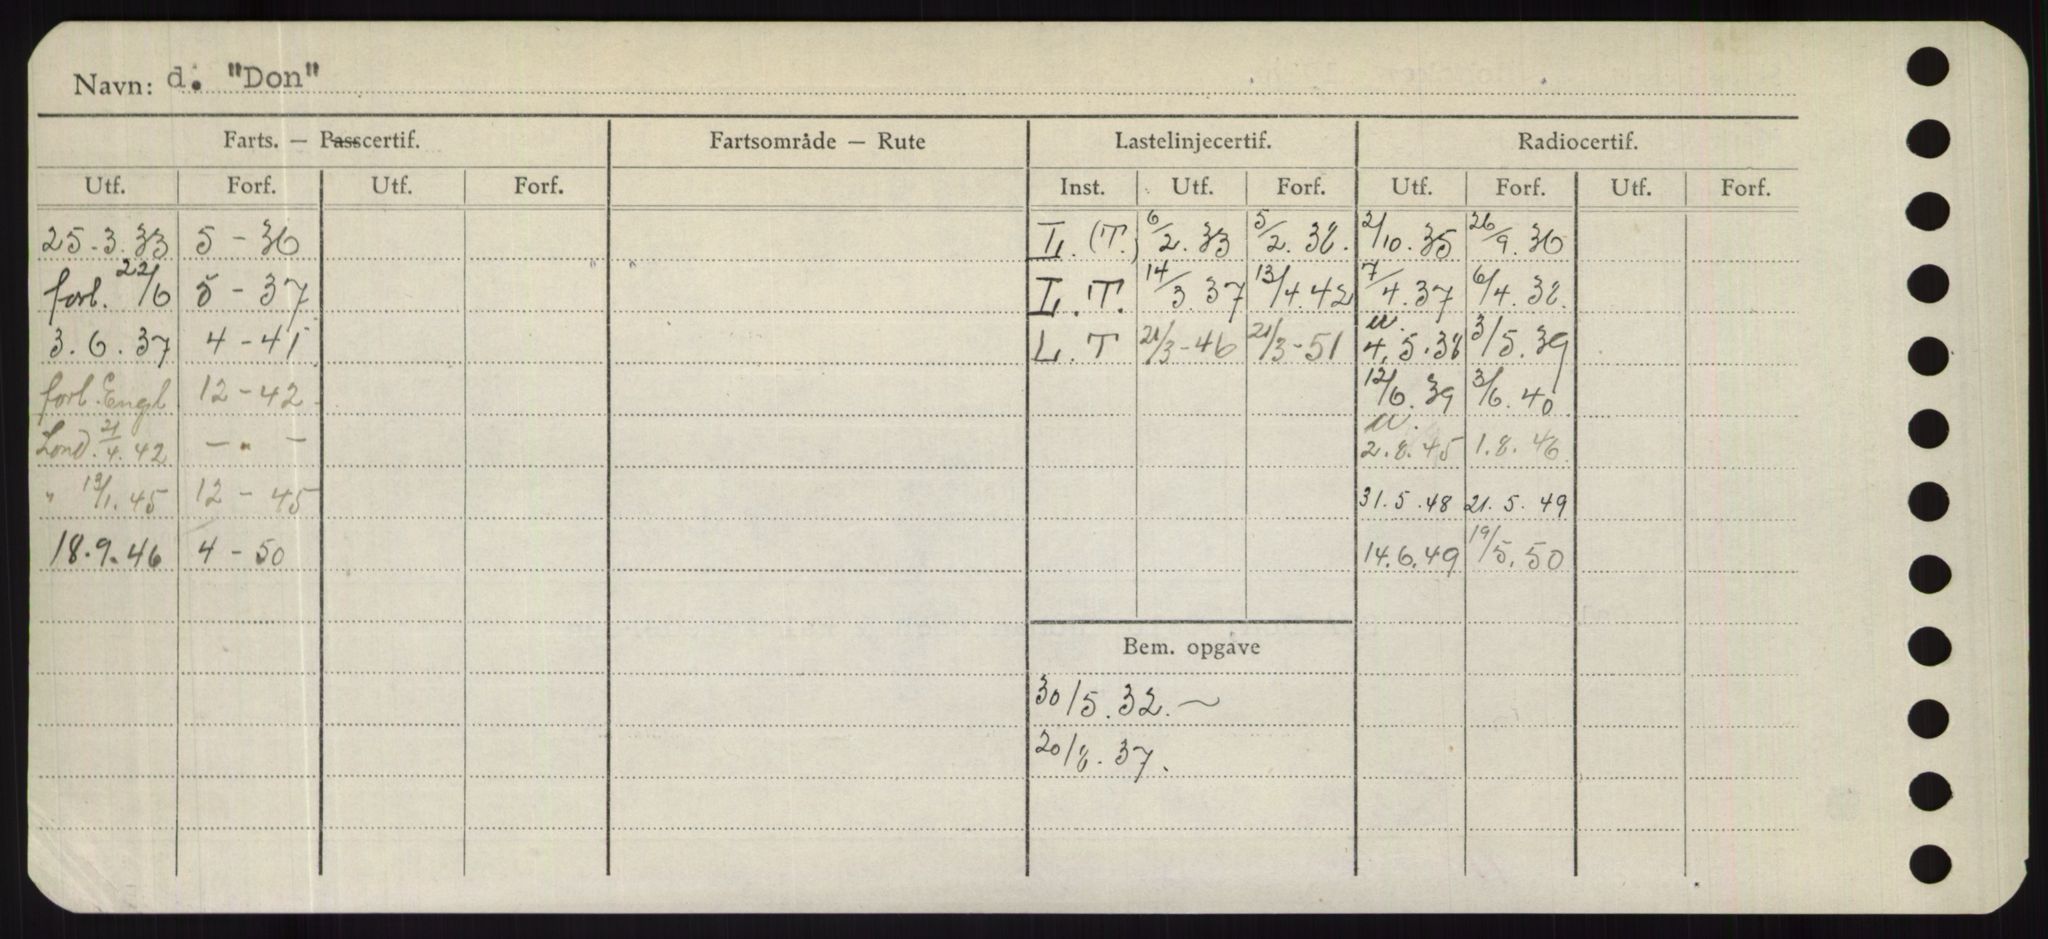 Navn: d. "Don"
Farts. — Passcertif. Fartsområde — Rute Lastelinjecertif. Radiocertif.
Utf. Forf. Utf. Forf. Inst. Utf. Forf. Utf. Forf. Utf. Forf.
25.3.33 5 - 36 L. (T.) 6/2.33 5/2.38. 2/10.35 26/9.36
forl. 22/6 5 - 37 L.T. 14/3.37 13/4.42 7/4.37 6/4.38.
3.6.37 4 - 41 L.T 21/3-46 21/3-51 4.5.38 3/5.39
forl. Engl. 12 - 42 12/6.39 3/6.40
Lond. 21/4.42 — " — 2.8.45 1.8.46
" 13/1.45 12 - 45 31.5.48 21.5.49
18.9.46 4 - 50 14.6.49 19/5.50
Bem. opgave
30/5.32. ~
20/8.37.